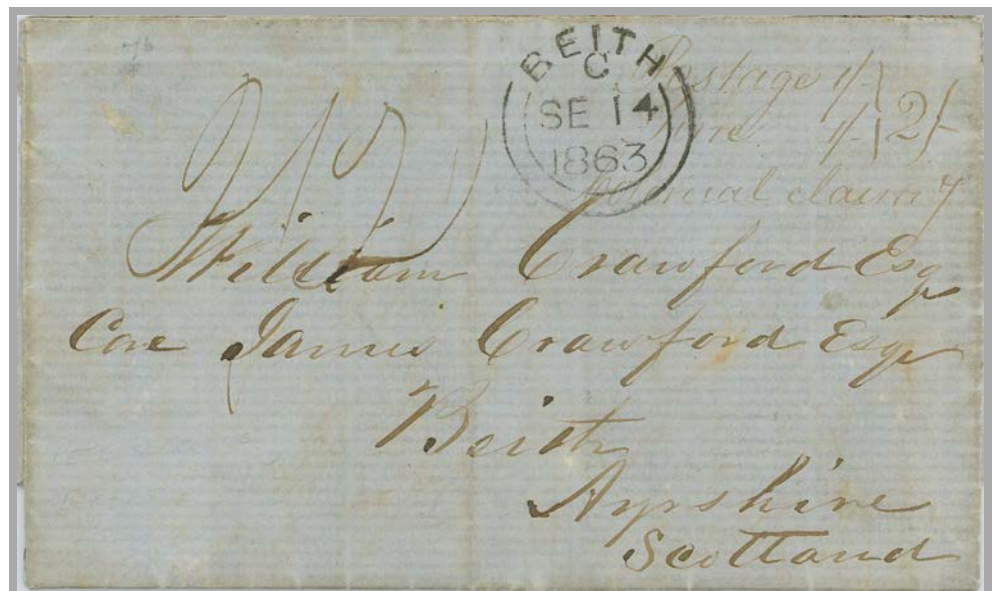 BEITH
C
SE 14
1863
Postage 1/-
Fine 1/- 2/-
claim 7
William Crawford Esq
Care James Crawford Esqr
Beith
Ayrshire
Scotland